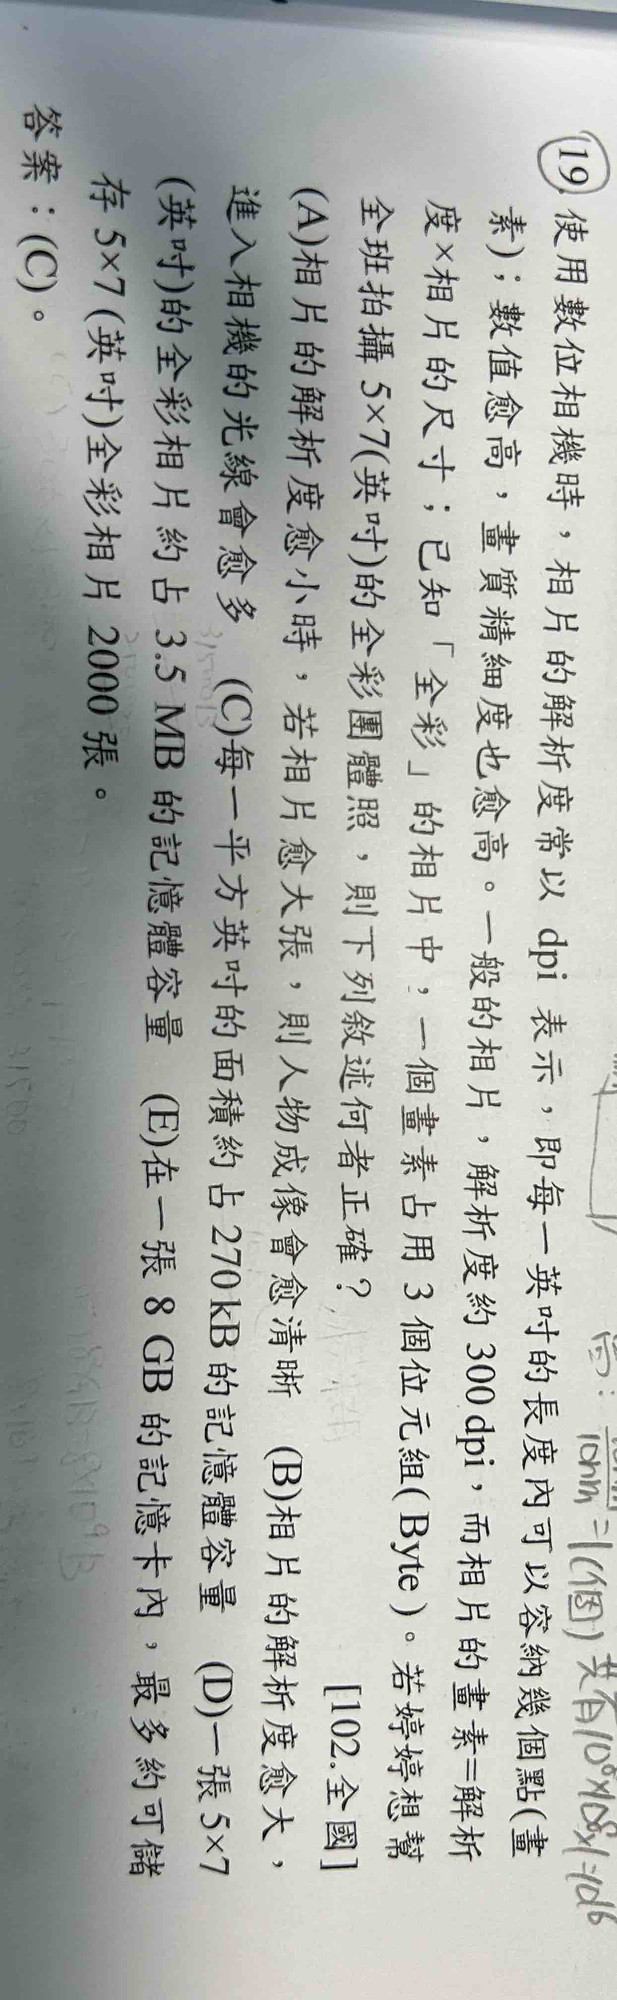 10nm = 1(個) 共有
⑲ 使用數位相機時，相片的解析度常以 dpi 表示，即每一英吋的長度內可以容納幾個點(畫
素)；數值愈高，畫質精細度也愈高。一般的相片，解析度約 300 dpi，而相片的畫素=解析
度×相片的尺寸；已知「全彩」的相片中，一個畫素占用 3 個位元組( Byte )。若婷婷想幫
全班拍攝 5×7(英吋)的全彩團體照，則下列敘述何者正確？
[102.全國]
(A)相片的解析度愈小時，若相片愈大張，則人物成像會愈清晰 (B)相片的解析度愈大，
進入相機的光線會愈多 (C)每一平方英吋的面積約占 270 kB 的記憶體容量 (D)一張 5×7
(英吋)的全彩相片約占 3.5 MB 的記憶體容量 (E)在一張 8 GB 的記憶卡內，最多約可儲
存 5×7 (英吋)全彩相片 2000 張。
答案：(C)。